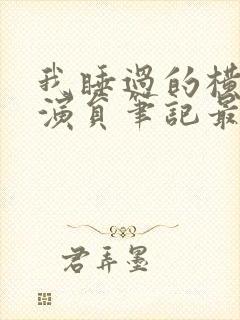 我睡過的橫
演員筆記最
君弄墨